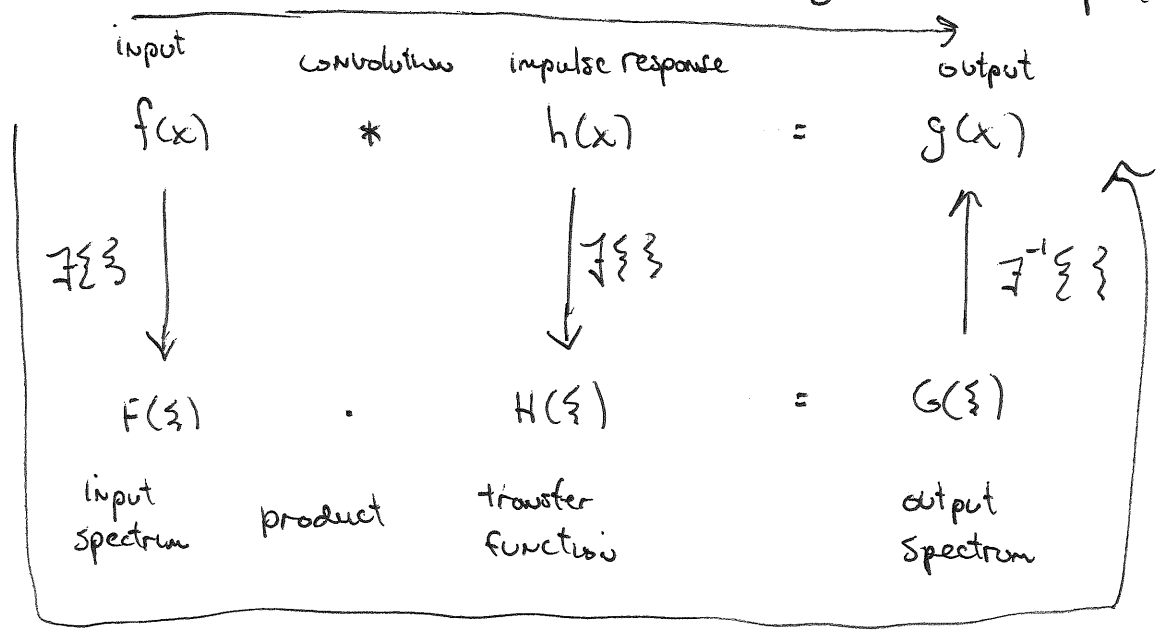 input convolution impulse response output
f(x) * h(x) = g(x)
ℱ{ } ℱ{ } ℱ⁻¹{ }
F(ξ) · H(ξ) = G(ξ)
input spectrum product transfer function output spectrum